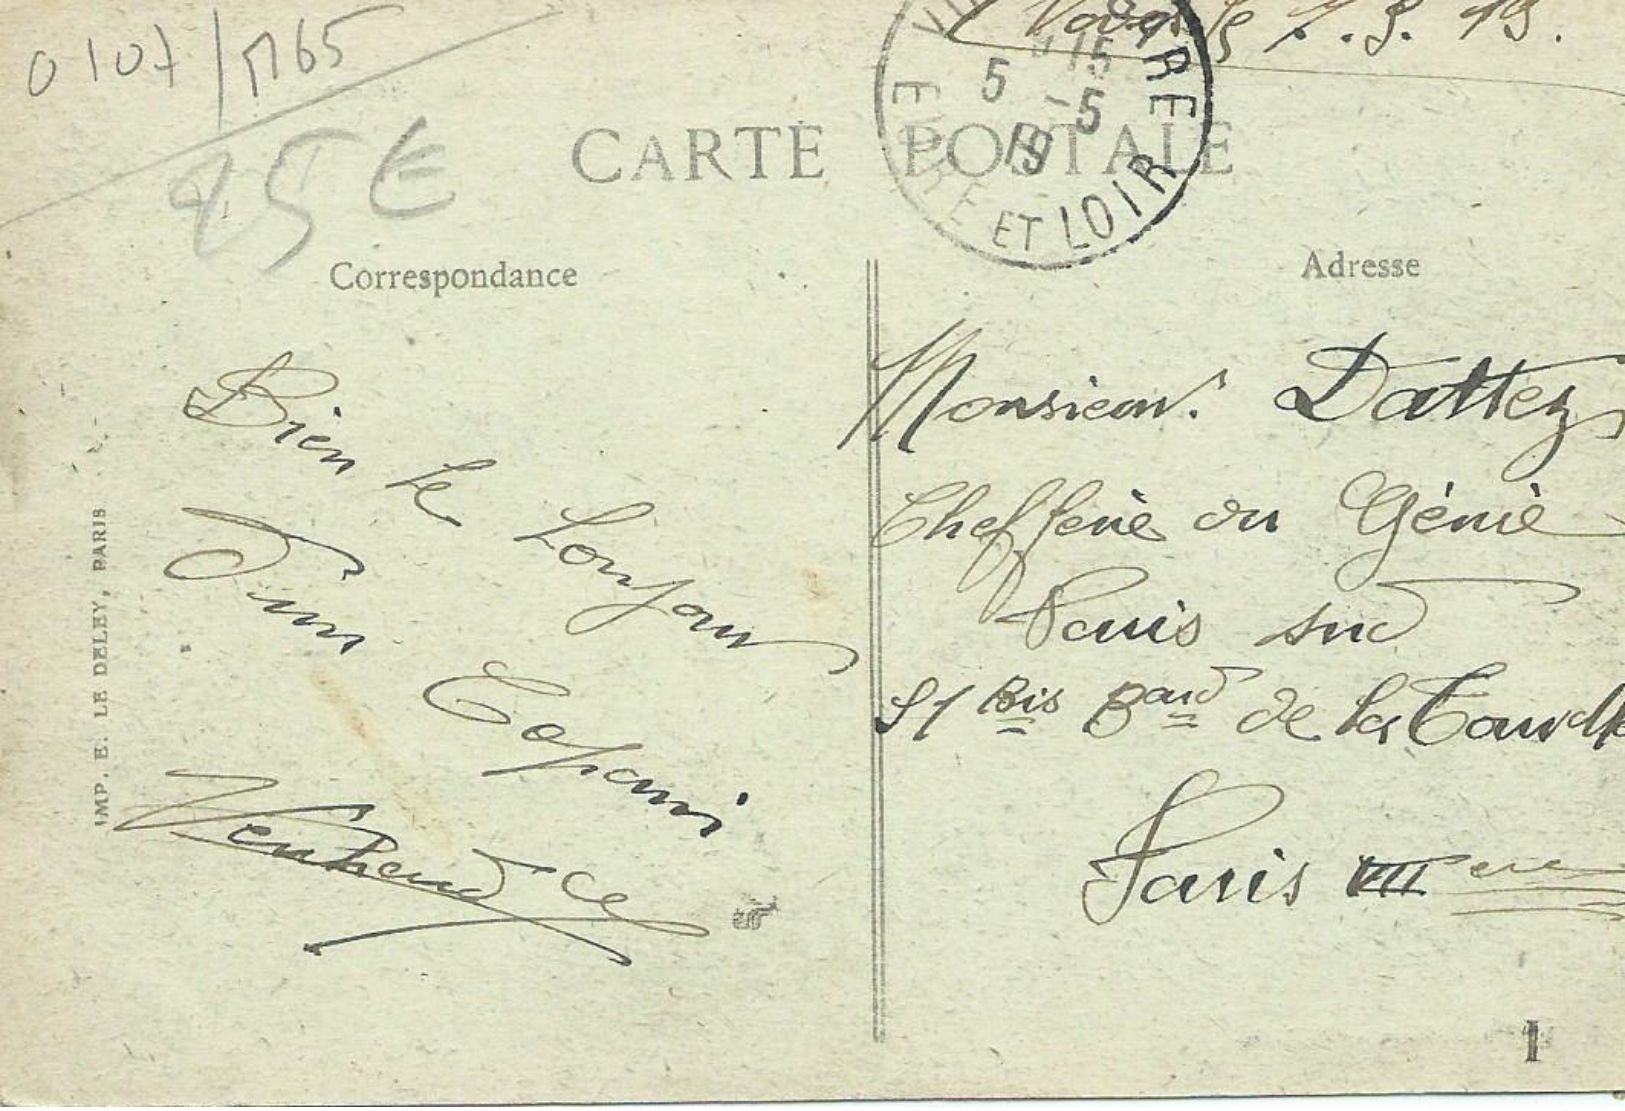 0107/M65
25 €
Voves le 7.5.19.
5 -5
19
EURE ET LOIR
CARTE POSTALE
Correspondance
Adresse
Bien le bonjour
d'un Copain
Monsieur Dattez
Chefferie du Génie
Paris sud
51 Bis Bard de la Tour
Paris VII eme
IMP. E. LE DELEY, PARIS
1